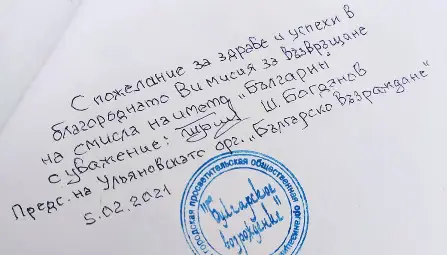 С пожелание за здраве и успехи в
благороднато Ви мисия за възвръщане
на смисла на името „Българин"
с уважение: Ш. Богданов
Предс. на Ульяновската орг. „Българско Възраждане"
5.02.2021
городская просветительская общественная организация
"Булгарское
возрождение"